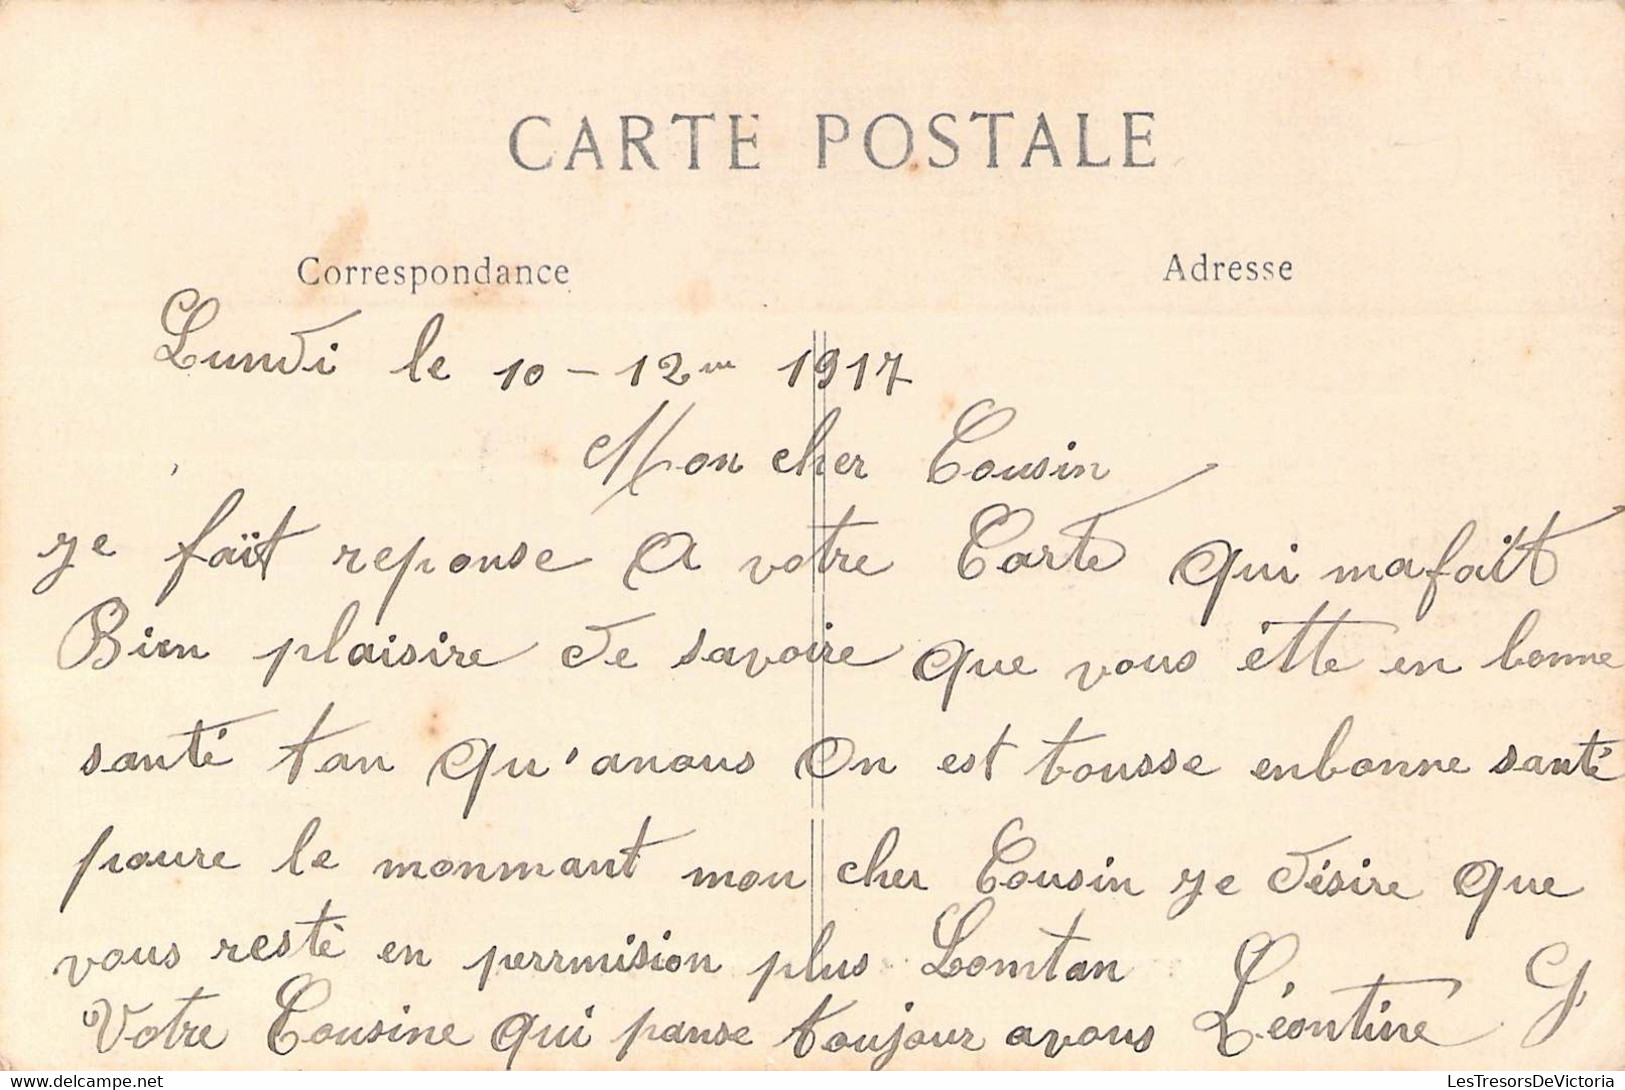 CARTE POSTALE
Correspondance Adresse
Lundi le 10 - 12m 1917
Mon cher Cousin
je faït reponse A votre Carte Qui mafaït
Bien plaisire de savoire Que vous étte en bonne
santé tan Qu'anous On est tousse enbonne santé
poure le monmant mon cher Cousin je désire Que
vous resté en perrmision plus Lomtan
Votre Cousine Qui panse toujour avous Léontine G
LesTresorsDeVictoria
© LesTresorsDeVictoria
delcampe.net